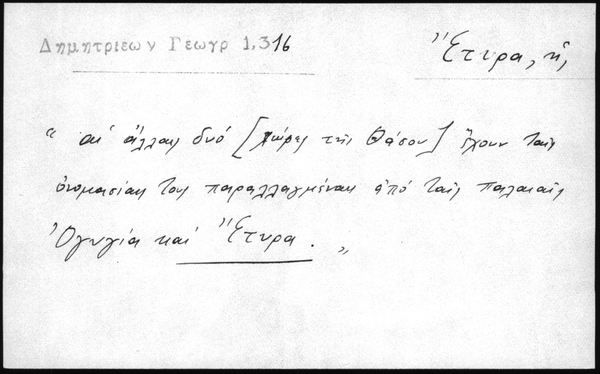 Δημητριεων Γεωγρ 1.316
Ἔτυρα, ἡ,
“ αἱ ἄλλαις δυό [χώρες τῆς Θάσου] ἔχουν ταῖς
ὀνομασίαις τους παραλλαγμέναις ἀπό ταῖς παλαιαῖς
Ὀγυγία καί Ἔτυρα. „